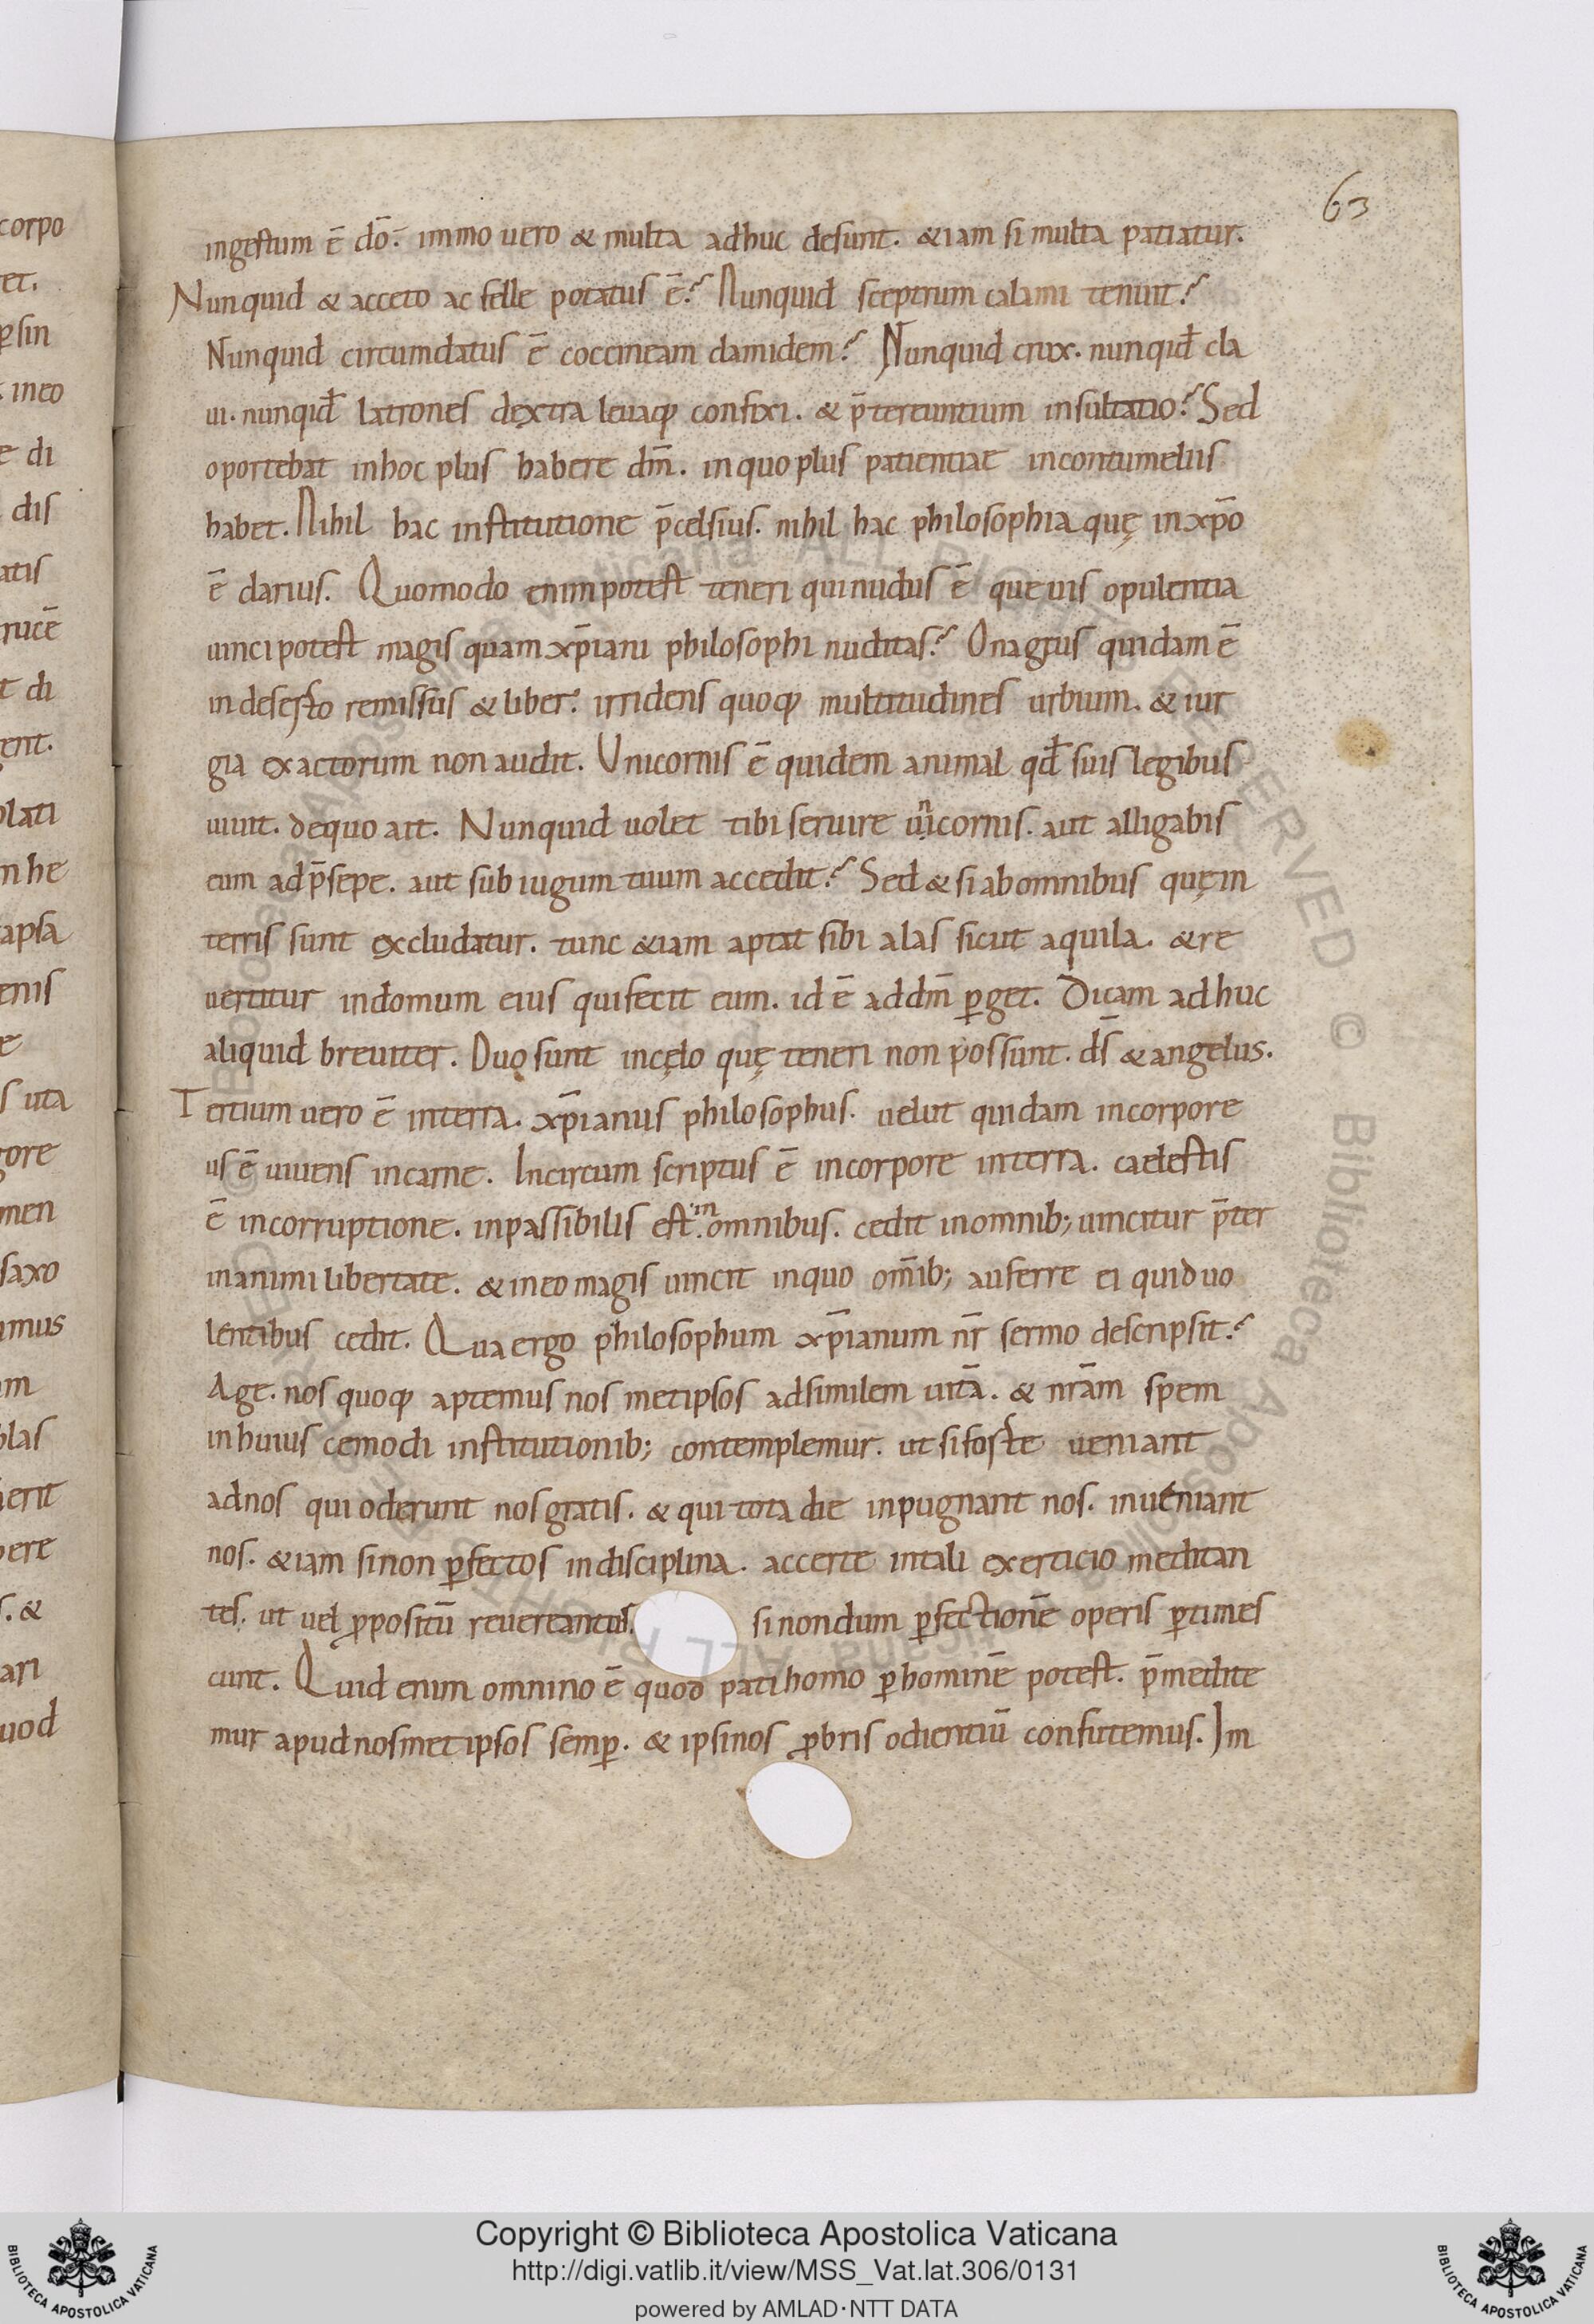 63
ingestum ē dō. immo uero & multa adhuc desunt. &iam si multa patiatur.
Nunquid & acceto ac felle potatus ē? Nunquid sceptrum calami tenuit?
Nunquid circumdatus ē coccineam clamidem? Nunquid crux. nunqid̄ cla
ui. nunqid̄ latrones dextra leuaq; confixi. & p̄tereuntium insultatio? Sed
oportebat inhoc plus habere dm̄. inquo plus patientiae incontumeliis
habet. Nihil hac institutione p̄celsius. nihil hac philosophia quę inxp̄o
ē clarius. Quomodo enim potest teneri quinudus ē que uis opulentia
uinci potest magis quam xp̄iani philosophi nuditas? Onagrus quidam ē
indeserto remissus & liber. irridens quoq; multitudines urbium. & iur
gia exactorum non audit. Unicornis ē quidem animal qd̄ suis legibus
uiuit. dequo ait. Nunquid uolet tibi seruire unicornis. aut alligabis
eum adp̄sepe. aut sub iugum tuum accedit? Sed & si abomnibus quęin
terris sunt excludatur. tunc &iam aptat sibi alas sicut aquila. &re
uertitur indomum eius quifecit eum. id ē addm̄ ꝑget. Dicam adhuc
aliquid breuiter. Duo sunt incęlo quę teneri non possunt. ds̄ & angelus.
Tertium uero ē interra. xp̄ianus philosophus. uelut quidam incorpore
us ē uiuens incarne. Incircum scriptus ē incorpore interra. caelestis
ē incorruptione. inpassibilis est. in omnibus. cedit inomnib; uincitur p̄ter
inanimi libertate. & ineo magis uincit inquo om̄ib; auferre ei quid uo
lentibus cedit. Qua ergo philosophum xp̄ianum nr̄ sermo descripsit?
Age. nos quoq; aptemus nos metipsos adsimilem uitā. & nrām spem
inhuius cemodi institutionib; contemplemur. ut siforte ueniant
adnos qui oderunt nos gratis. & qui tota die inpugnant nos. inueniant
nos. &iam sinon ꝑfectos indisciplina. accerte intali exercicio meditan
tes. ut uel ꝓpositū reuereantur. si nondum ꝑfectionē operis ꝑtimes
cunt. Quid enim omnino ē quod pati homo ꝑhominē potest. p̄medite
mur apud nosmet ipsos semꝑ. & ipsinos ꝓbris odientiū confirtemus. Im
corpo
et.
ꝑsin
ineo
e di
dis
atis
rucē
t di
ent.
lati
nhe
apsa
enis
e
s uta
gore
men
saxo
imus
um
las
erit
bere
s. &
ari
uod
Copyright © Biblioteca Apostolica Vaticana
http://digi.vatlib.it/view/MSS_Vat.lat.306/0131
powered by AMLAD·NTT DATA
BIBLIOTECA APOSTOLICA VATICANA
BIBLIOTECA APOSTOLICA VATICANA